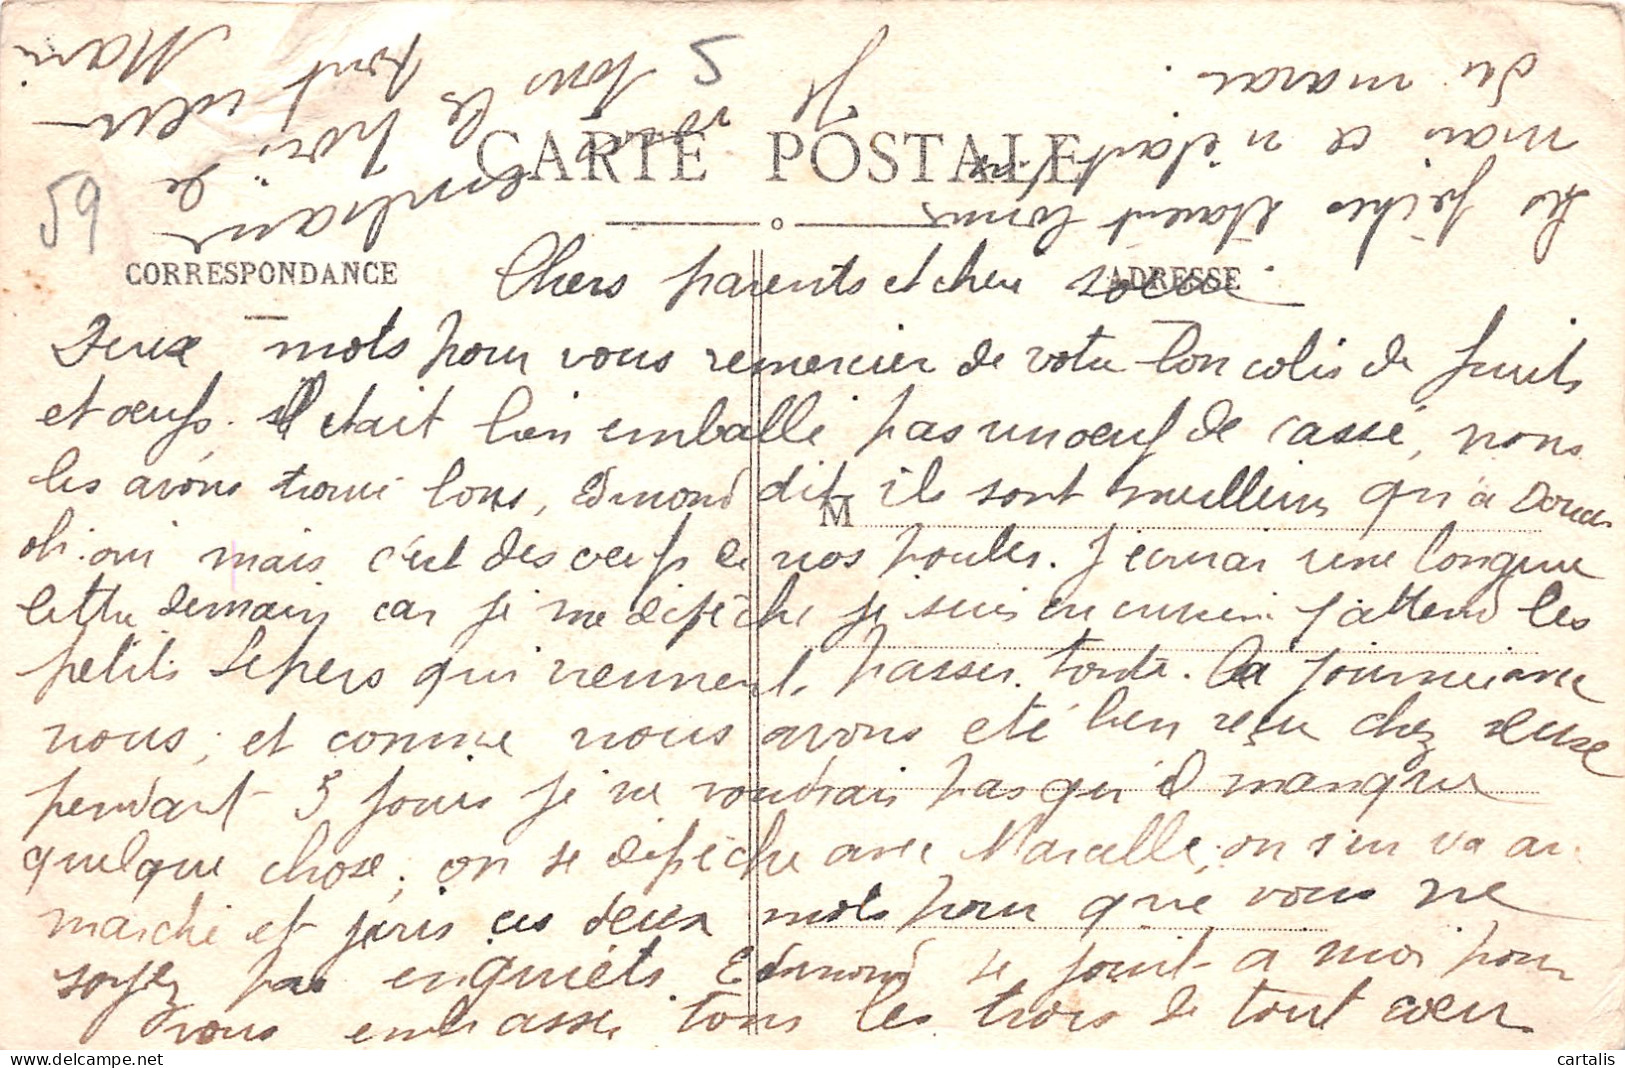 CARTE POSTALE
CORRESPONDANCE
ADRESSE
M
59
5
Chers parents et chere soeur
Deux mots pour vous remercier de votre bon colis de fruits
et oeufs. Il était bien emballé pas un oeuf de cassé, nous
les avons trouvé bons, Edmond dit ils sont meilleurs qu'a Douai
oh oui mais c'est des oeufs de nos poules. J'ecrirai une longue
lettre demain car je me dépêche je suis en cuisine j'attend les
petits Lepers qui viennent passer toute la journée avec
nous, et comme nous avons eté bien reçu chez eux
pendant 3 jours je ne voudrais pas qu'il manque
quelque chose, on se dépêche avec Marcelle, on s'en va au
marché et j'eris ces deux mots pour que vous ne
soyez pas enquiéts. Edmond se joint a moi pour
vous embrasser tous les trois de tout coeur
Les pêches étaient
mais ce n'était
du marai.
Je vous
embrasse
tous les trois de
tout coeur
Mari
cartalis